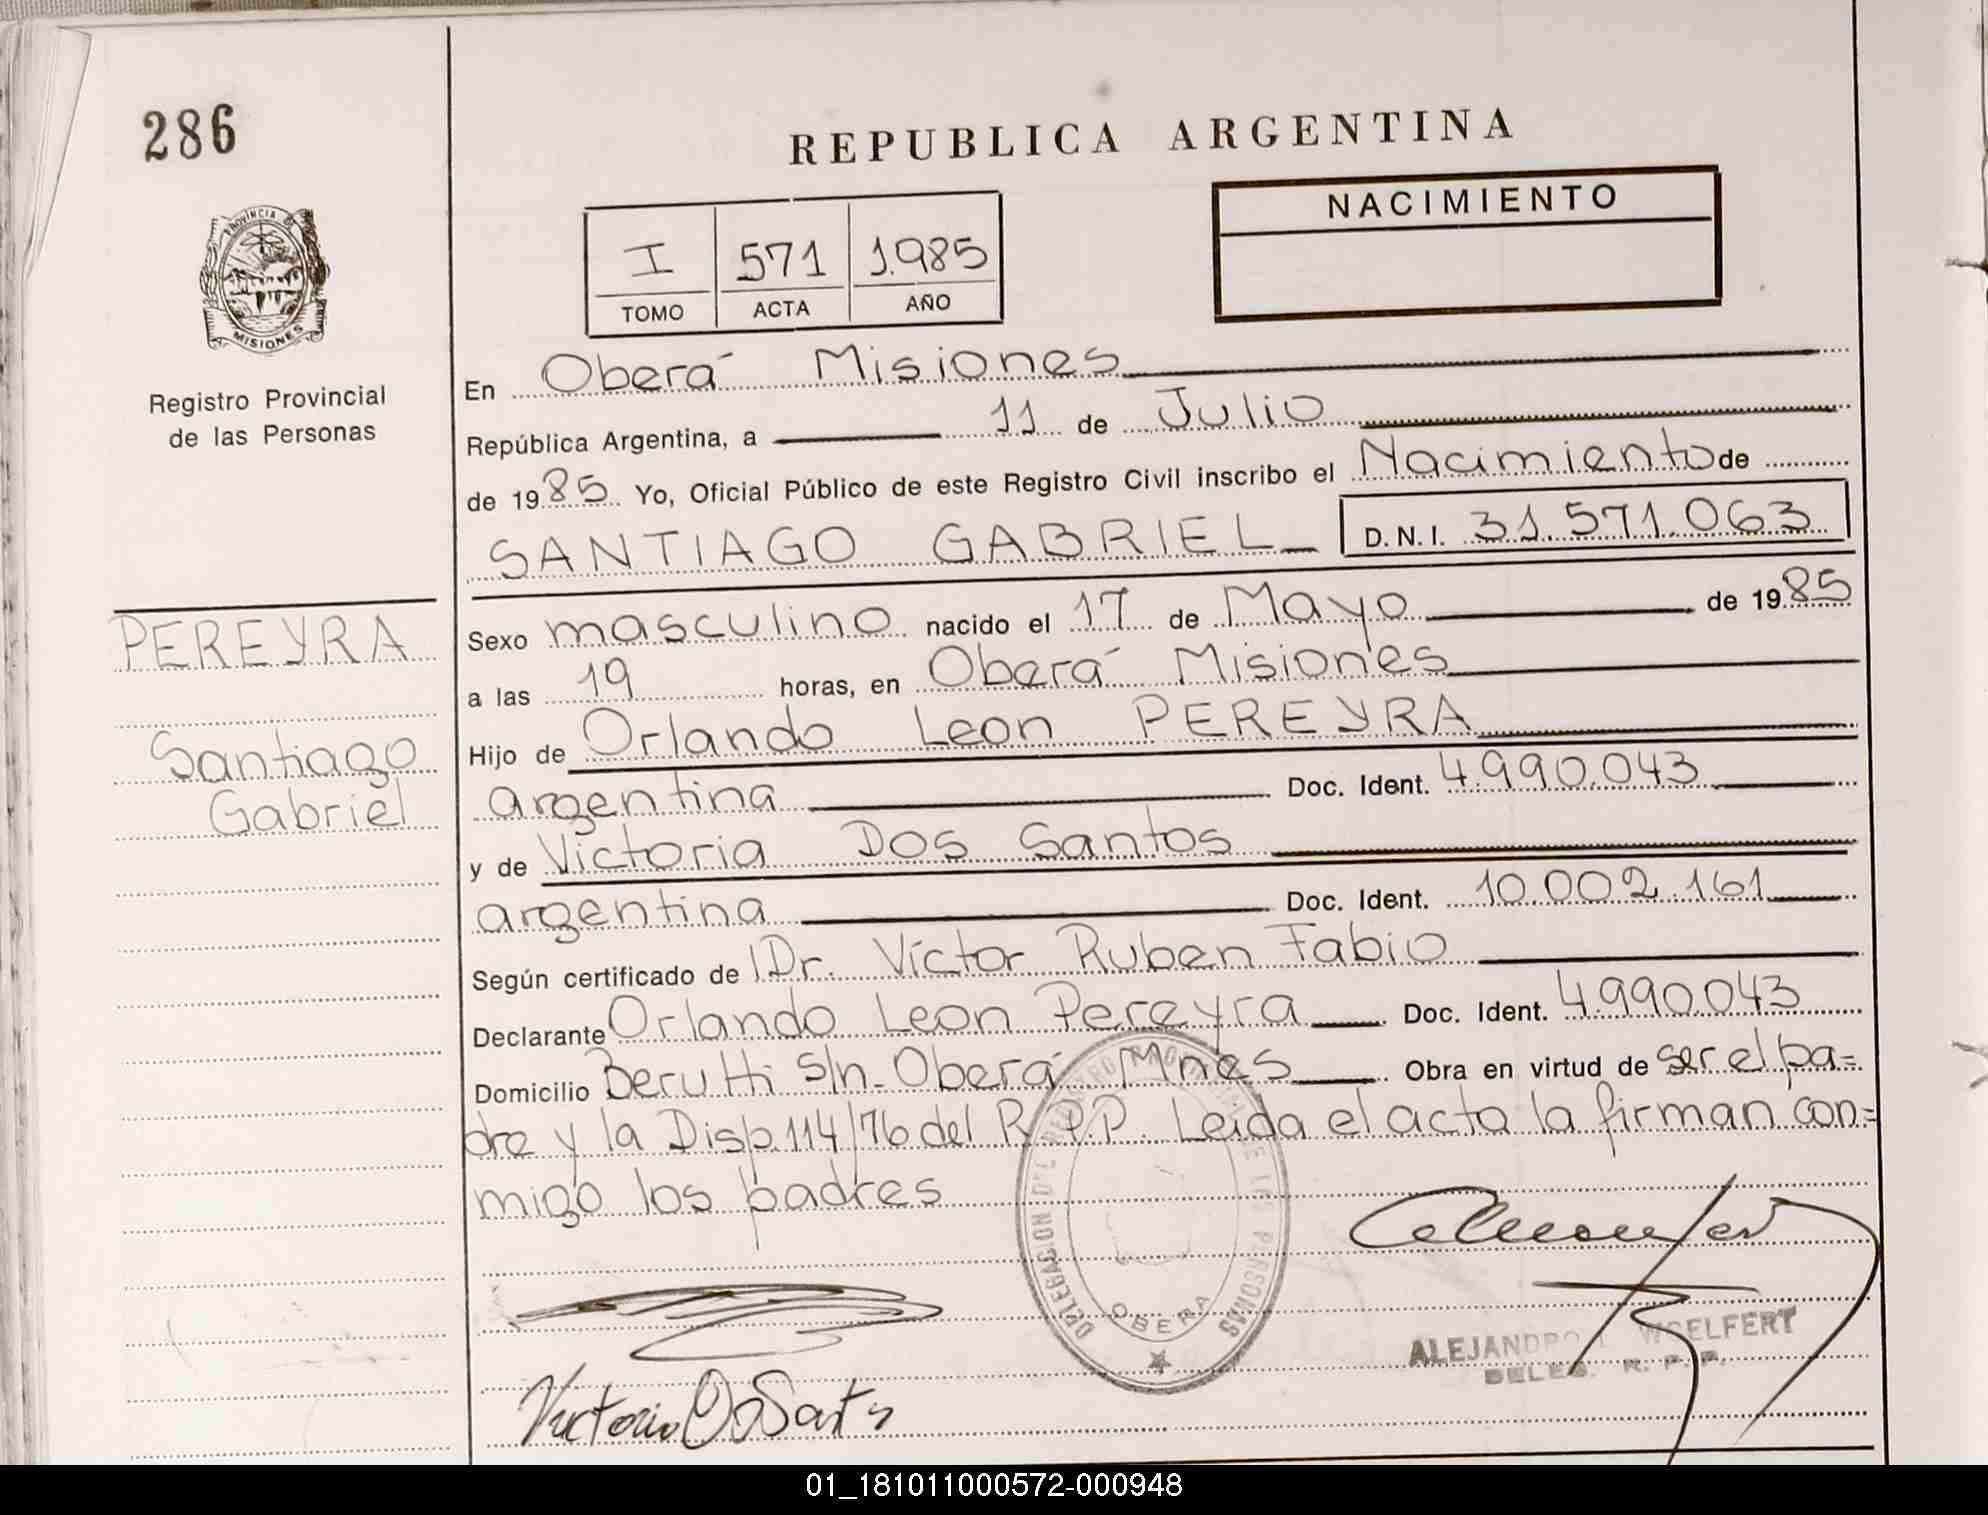 286
REPUBLICA ARGENTINA
NACIMIENTO
I 571 1.985
TOMO ACTA AÑO
PROVINCIA DE
MISIONES
Registro Provincial
de las Personas
En Oberá Misiones
República Argentina, a 11 de Julio
de 1985 Yo, Oficial Público de este Registro Civil inscribo el Nacimiento de
SANTIAGO GABRIEL D.N.I. 31.571.063
PEREYRA
Santiago
Gabriel
Sexo masculino nacido el 17 de Mayo de 1985
a las 19 horas, en Oberá Misiones
Hijo de Orlando Leon PEREYRA
argentina Doc. Ident. 4.990.043
y de Victoria Dos Santos
argentina Doc. Ident. 10.002.161
Según certificado de Dr. Víctor Ruben Fabio
Declarante Orlando Leon Pereyra Doc. Ident. 4.990.043
Domicilio Berutti S/n- Oberá Mnes Obra en virtud de ser el pa=
dre y la Disp. 114/76 del R.P.P. Leida el acta la firman con=
migo los padres
DELEGACION DEL REGISTRO PROVINCIAL DE LAS PERSONAS
OBERA
ALEJANDRO WOELFERT
DELEG. R. P. P.
Victoria Do Santos
01_181011000572-000948